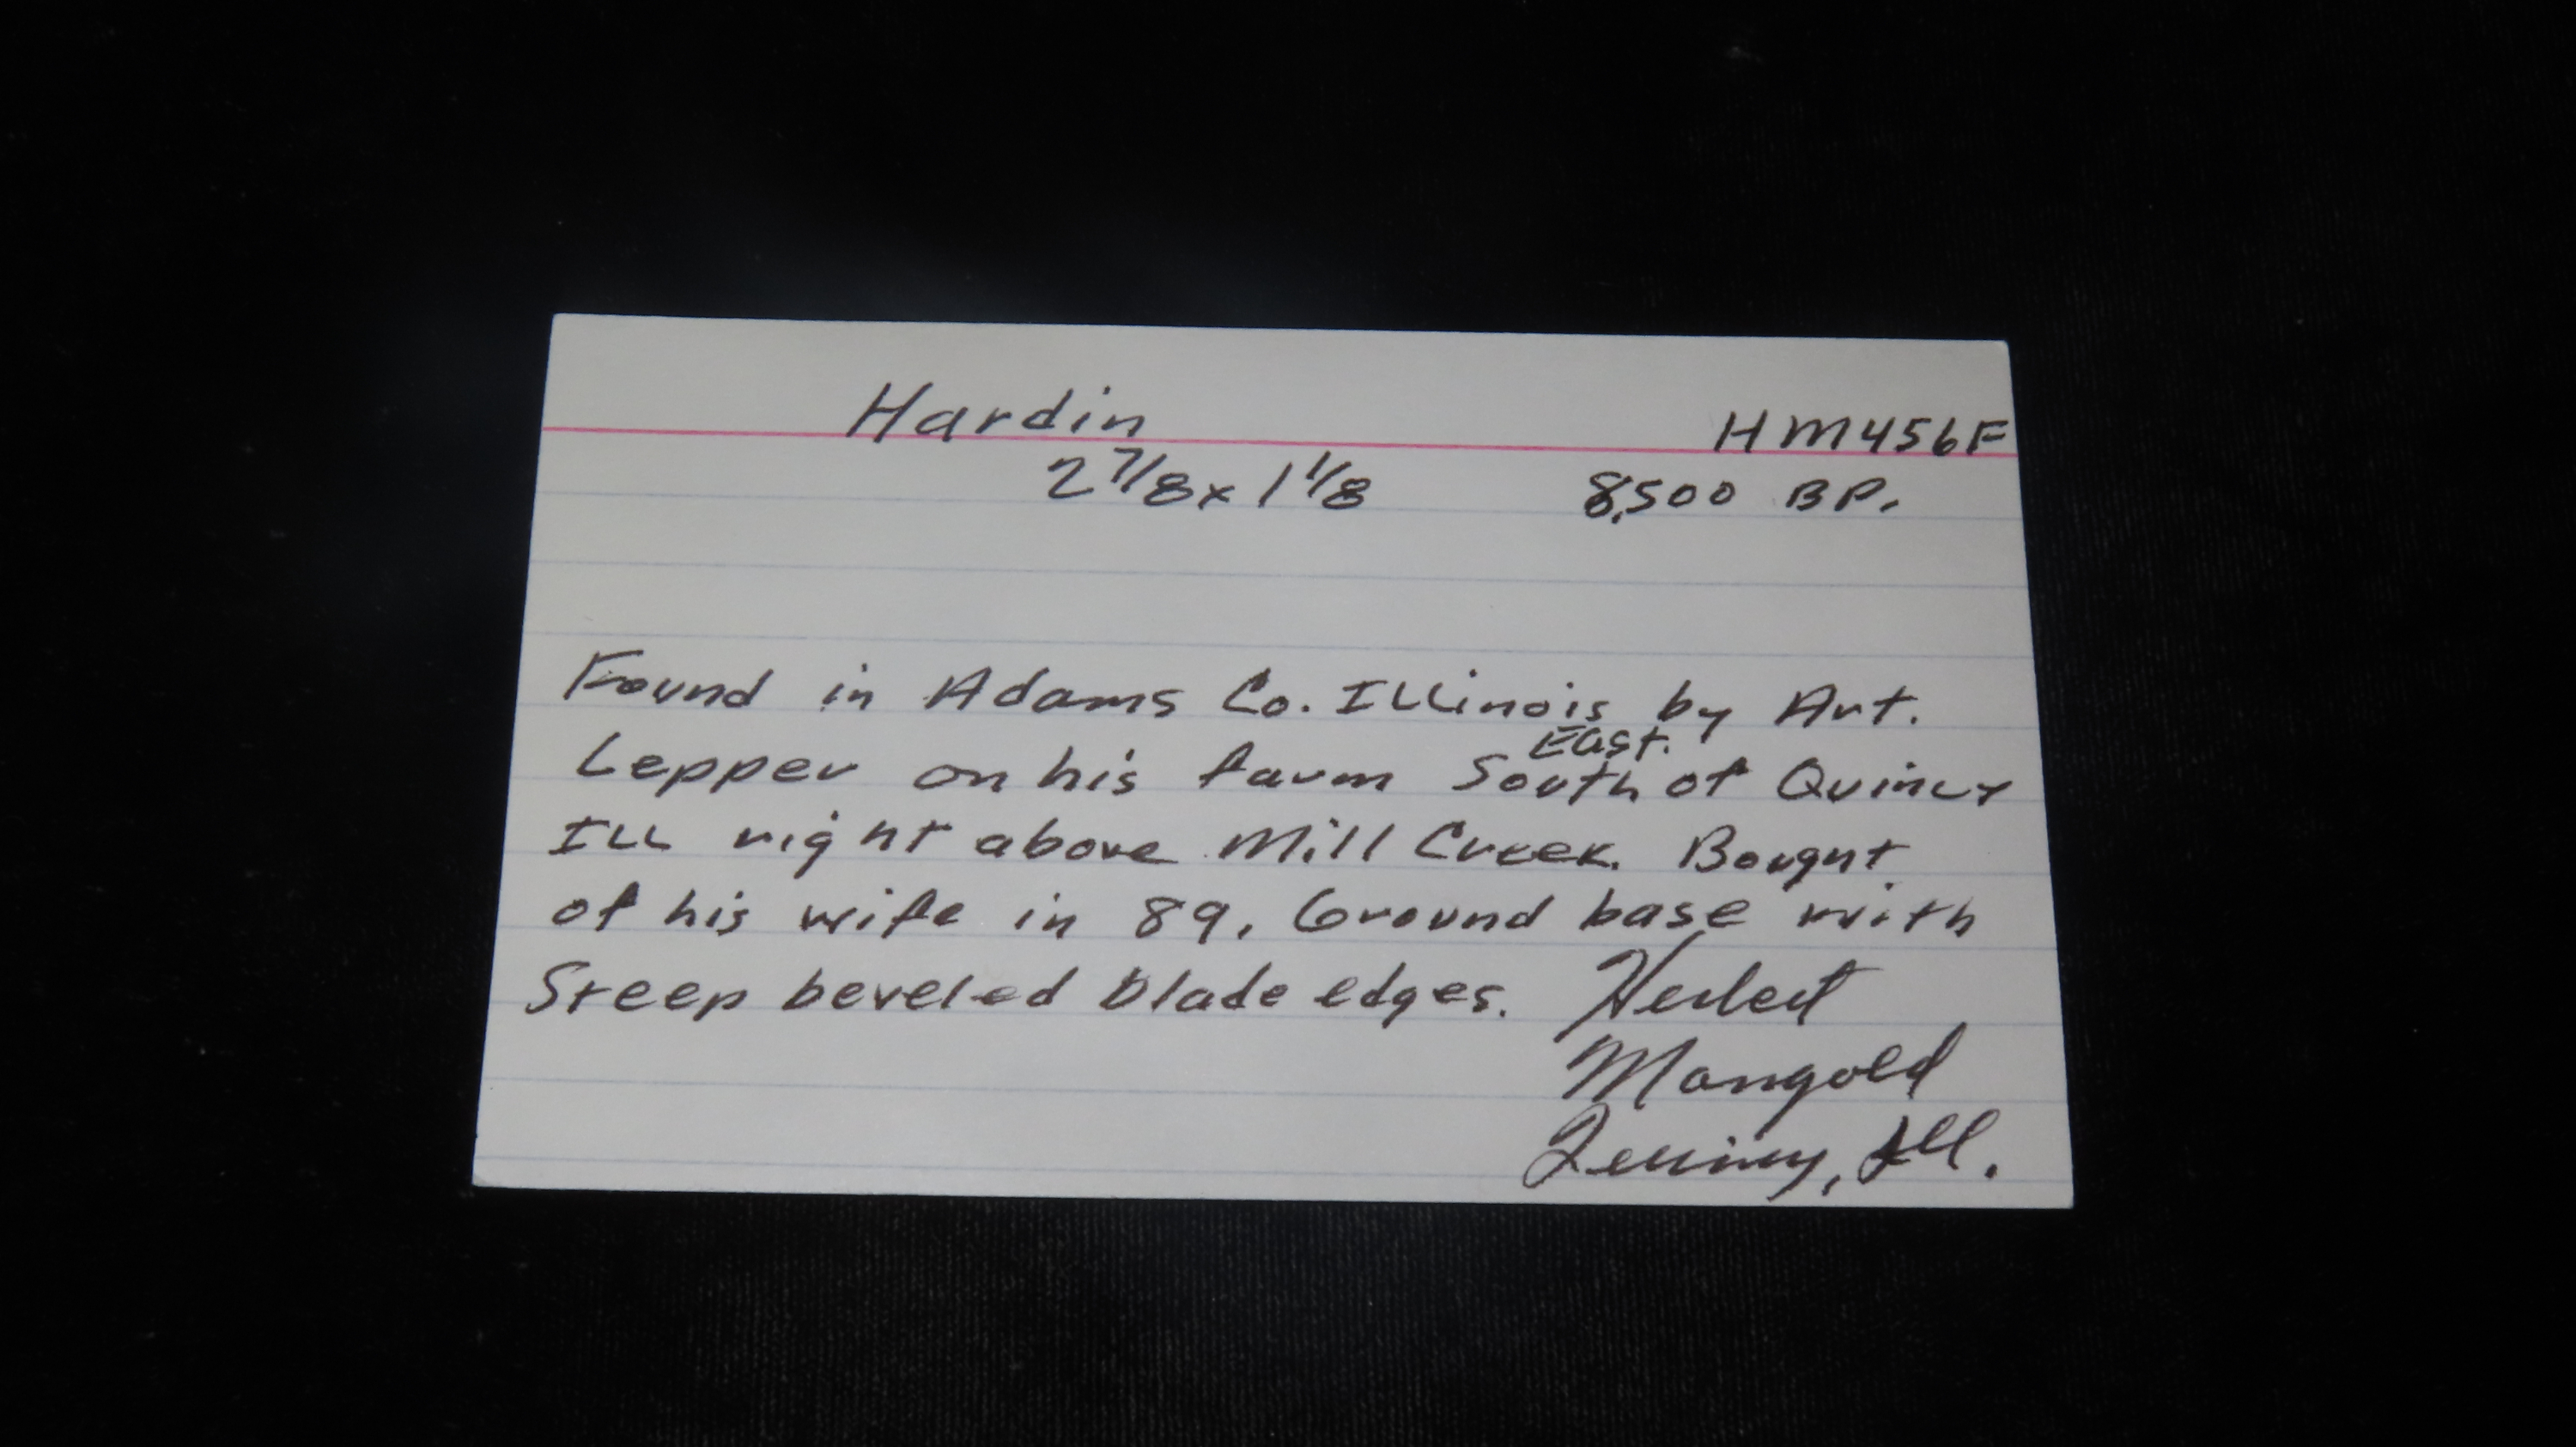 Hardin HM456F
2 7/8 x 1 1/8 8,500 BP.
Found in Adams Co. Illinois by Art.
East.
Lepper on his farm South of Quincy
ILL right above Mill Creek. Bought
of his wife in 89. Ground base with
Steep beveled blade edges. Herbert
Mangold
Quincy, Ill.